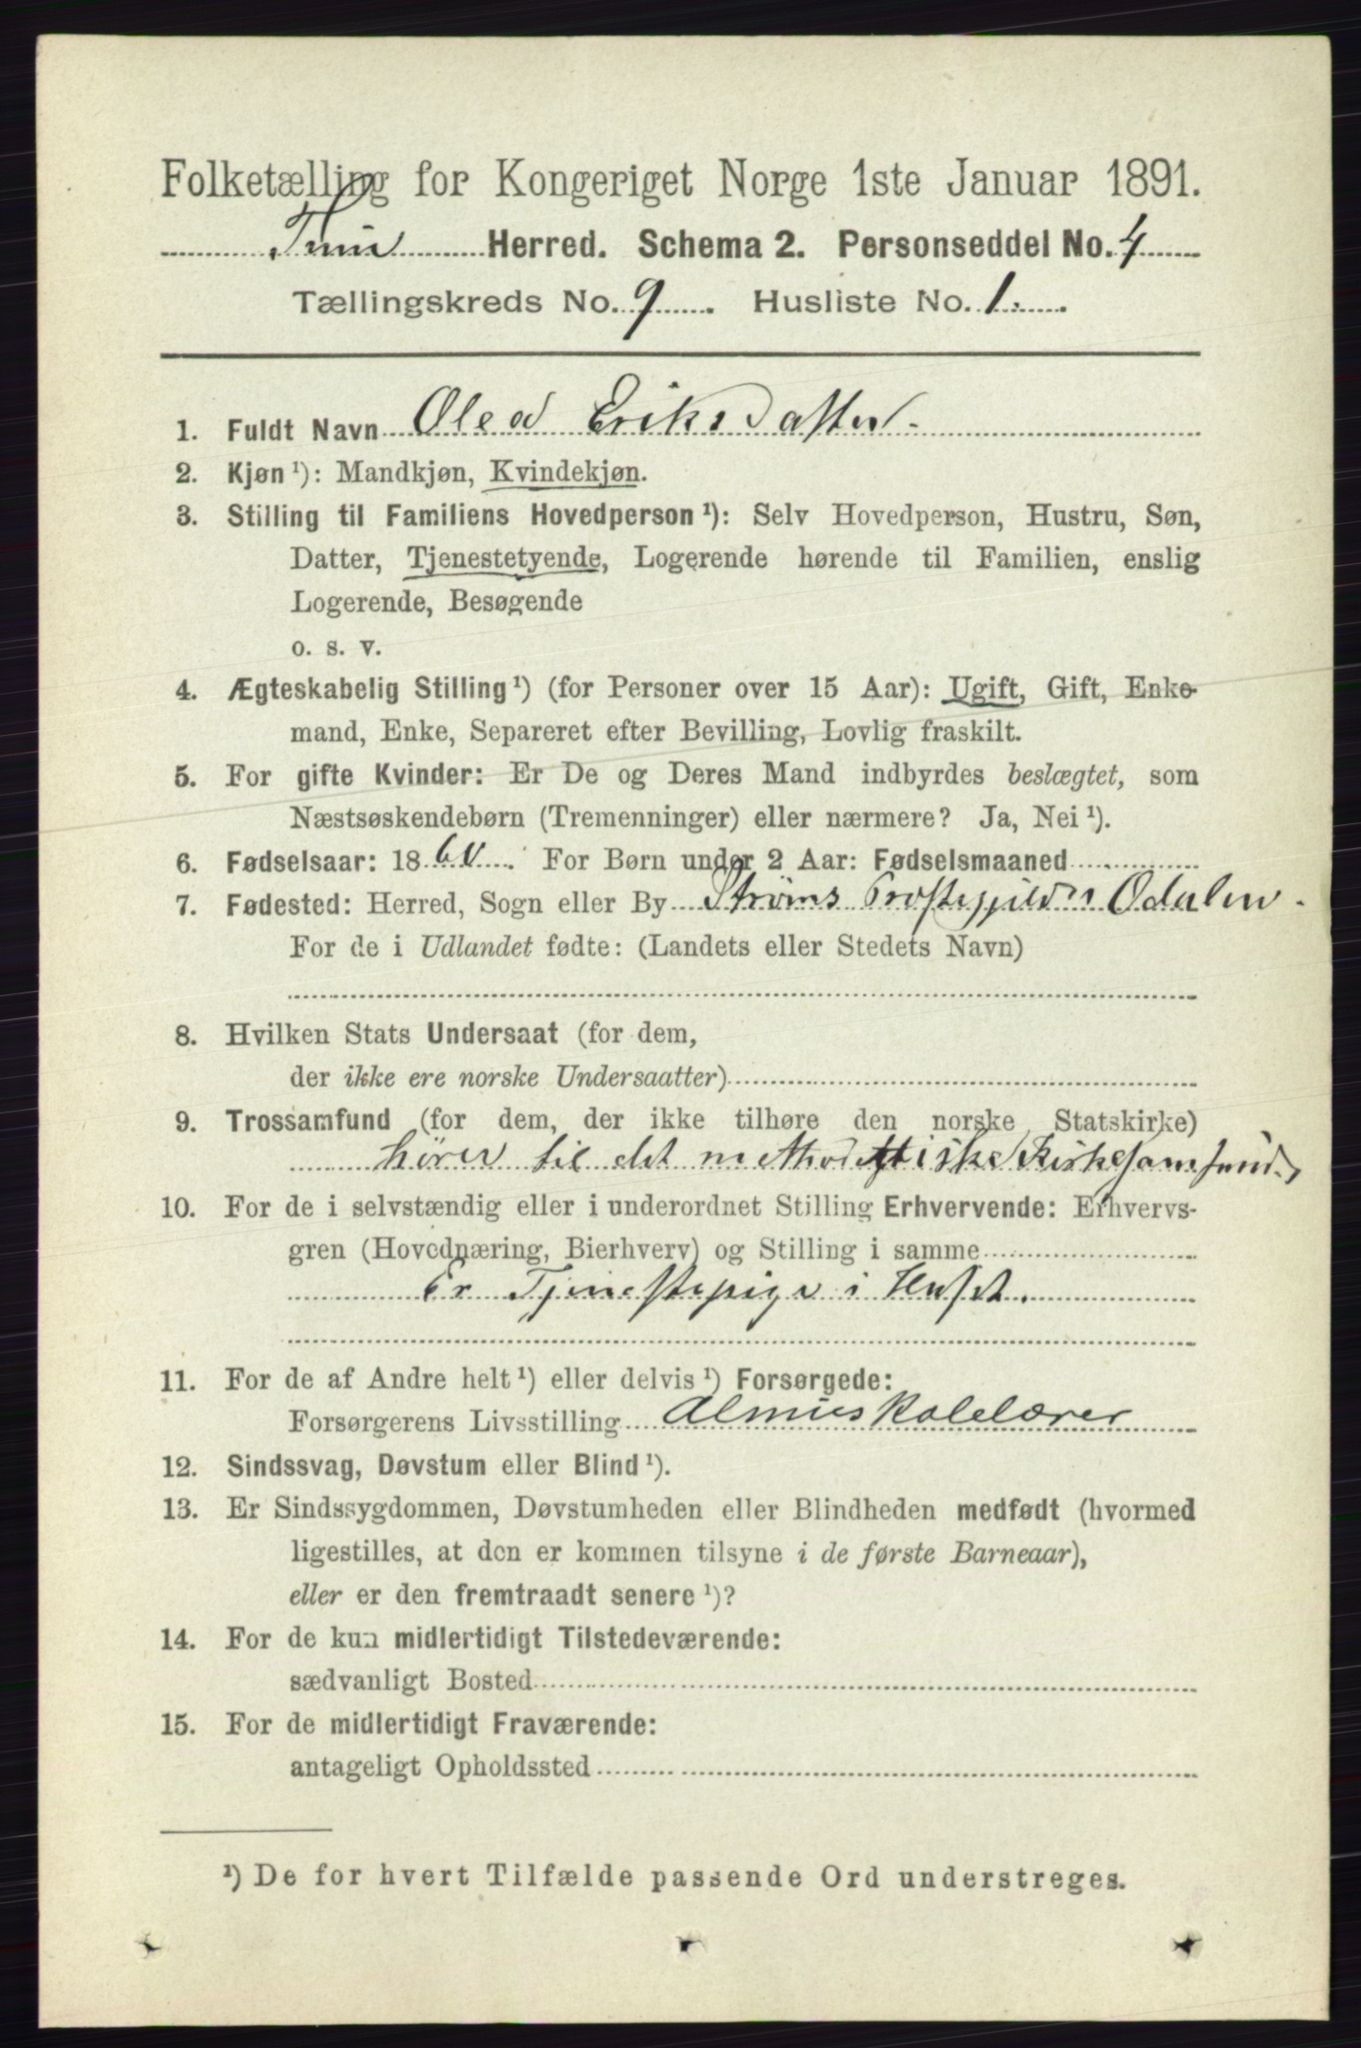 Folketælling for Kongeriget Norge 1ste Januar 1891.
Tune Herred. Schema 2. Personseddel No. 4
Tællingskreds No. 9. Husliste No. 1.
1. Fuldt Navn Olea Eriksdatter.
2. Kjøn ¹): Mandkjøn, Kvindekjøn.
3. Stilling til Familiens Hovedperson ¹): Selv Hovedperson, Hustru, Søn,
Datter, Tjenestetyende, Logerende hørende til Familien, enslig
Logerende, Besøgende
o. s. v.
4. Ægteskabelig Stilling ¹) (for Personer over 15 Aar): Ugift, Gift, Enke-
mand, Enke, Separeret efter Bevilling, Lovlig fraskilt.
5. For gifte Kvinder: Er De og Deres Mand indbyrdes beslægtet, som
Næstsøskendebørn (Tremenninger) eller nærmere? Ja, Nei ¹).
6. Fødselsaar: 1860. For Børn under 2 Aar: Fødselsmaaned
7. Fødested: Herred, Sogn eller By Strøms Prestegjeld Odalen.
For de i Udlandet fødte: (Landets eller Stedets Navn)
8. Hvilken Stats Undersaat (for dem,
der ikke ere norske Undersaatter)
9. Trossamfund (for dem, der ikke tilhøre den norske Statskirke)
hører til det methodistiske Kirkesamfund.
10. For de i selvstændig eller i underordnet Stilling Erhvervende: Erhvervs-
gren (Hovednæring, Bierhverv) og Stilling i samme
Er Tjenestepige i Huset.
11. For de af Andre helt ¹) eller delvis ¹) Forsørgede:
Forsørgerens Livsstilling Almueskolelærer
12. Sindssvag, Døvstum eller Blind ¹).
13. Er Sindssygdommen, Døvstumheden eller Blindheden medfødt (hvormed
ligestilles, at den er kommen tilsyne i de første Barneaar),
eller er den fremtraadt senere ¹)?
14. For de kun midlertidigt Tilstedeværende:
sædvanligt Bosted
15. For de midlertidigt Fraværende:
antageligt Opholdssted
¹) De for hvert Tilfælde passende Ord understreges.